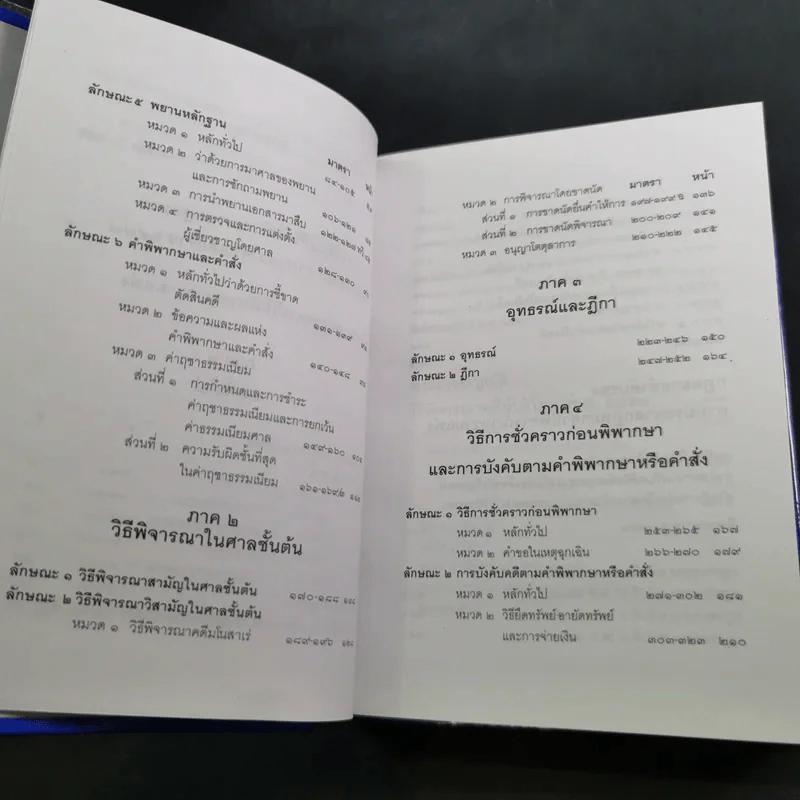 ลักษณะ ๕ พยานหลักฐาน
มาตรา
หมวด ๑ หลักทั่วไป ๘๔-๑๐๕
หมวด ๒ ว่าด้วยการมาศาลของพยาน
และการซักถามพยาน ๑๐๖-๑๒๑
หมวด ๓ การนำพยานเอกสารมาสืบ ๑๒๒-๑๒๗
หมวด ๔ การตรวจและการแต่งตั้ง
ผู้เชี่ยวชาญโดยศาล ๑๒๘-๑๓๐
ลักษณะ ๖ คำพิพากษาและคำสั่ง
หมวด ๑ หลักทั่วไปว่าด้วยการชี้ขาด
ตัดสินคดี ๑๓๑-๑๓๙
หมวด ๒ ข้อความและผลแห่ง
คำพิพากษาและคำสั่ง ๑๔๐-๑๔๘
หมวด ๓ ค่าฤชาธรรมเนียม
ส่วนที่ ๑ การกำหนดและการชำระ
ค่าฤชาธรรมเนียมและการยกเว้น
ค่าธรรมเนียมศาล ๑๔๙-๑๖๐
ส่วนที่ ๒ ความรับผิดชั้นที่สุด
ในค่าฤชาธรรมเนียม ๑๖๑-๑๖๙/๒
ภาค ๒
วิธีพิจารณาในศาลชั้นต้น
ลักษณะ ๑ วิธีพิจารณาสามัญในศาลชั้นต้น ๑๗๐-๑๘๘
ลักษณะ ๒ วิธีพิจารณาวิสามัญในศาลชั้นต้น
หมวด ๑ วิธีพิจารณาคดีมโนสาเร่ ๑๘๙-๑๙๖
มาตรา หน้า
หมวด ๒ การพิจารณาโดยขาดนัด
ส่วนที่ ๑ การขาดนัดยื่นคำให้การ ๑๙๗-๑๙๙ ฉ ๑๓๖
ส่วนที่ ๒ การขาดนัดพิจารณา ๒๐๐-๒๐๙ ๑๔๑
หมวด ๓ อนุญาโตตุลาการ ๒๑๐-๒๒๒ ๑๔๕
ภาค ๓
อุทธรณ์และฎีกา
ลักษณะ ๑ อุทธรณ์ ๒๒๓-๒๔๖ ๑๕๐
ลักษณะ ๒ ฎีกา ๒๔๗-๒๕๒ ๑๖๔
ภาค ๔
วิธีการชั่วคราวก่อนพิพากษา
และการบังคับตามคำพิพากษาหรือคำสั่ง
ลักษณะ ๑ วิธีการชั่วคราวก่อนพิพากษา
หมวด ๑ หลักทั่วไป ๒๕๓-๒๖๕ ๑๖๗
หมวด ๒ คำขอในเหตุฉุกเฉิน ๒๖๖-๒๗๐ ๑๗๙
ลักษณะ ๒ การบังคับคดีตามคำพิพากษาหรือคำสั่ง
หมวด ๑ หลักทั่วไป ๒๗๑-๓๐๒ ๑๘๑
หมวด ๒ วิธียึดทรัพย์ อายัดทรัพย์
และการจ่ายเงิน ๓๐๓-๓๒๓ ๒๑๐